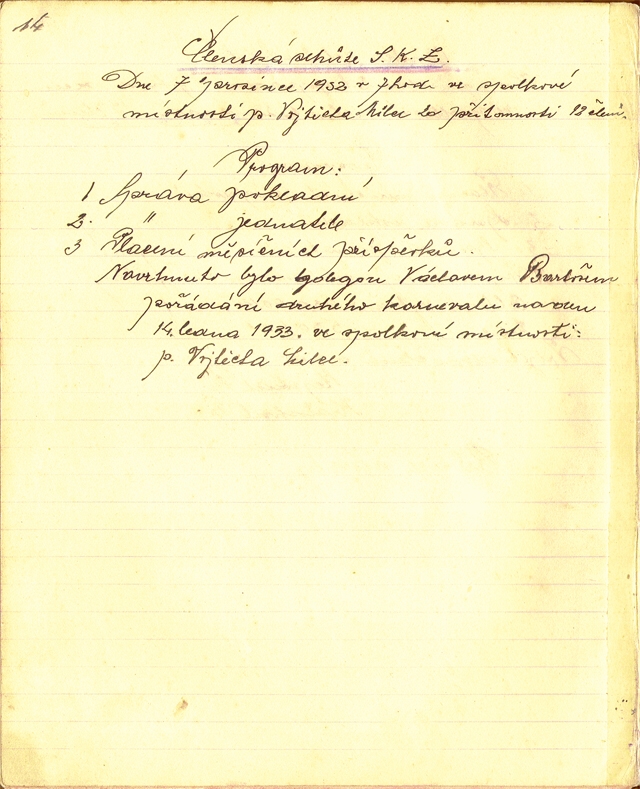 14
Členská schůze S. K. Z.
Dne 7 prosince 1932 v 7 hod. ve spolkové
místnosti p. Vojtěcha za přítomnosti 12 členů.
Program:
1 Správa pokladní
2. " jednatele
3 Placení měsíčních příspěvků.
Navrhnuto bylo kolegou Václavem Bartošem
pořádání druhého karnevalu na den
14. ledna 1933. ve spolkové místnosti:
p. Vojtěcha